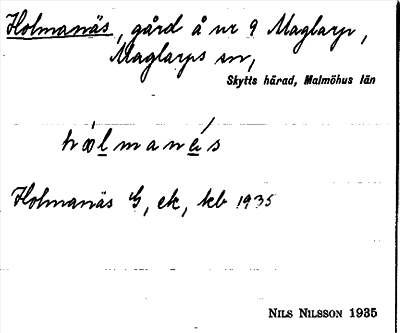 Holmanäs, gård å nr 9 Maglarp,
Maglarps sn,
Skytts härad, Malmöhus län
Holmanäs G, ek, kb 1935
NILS NILSSON 1935